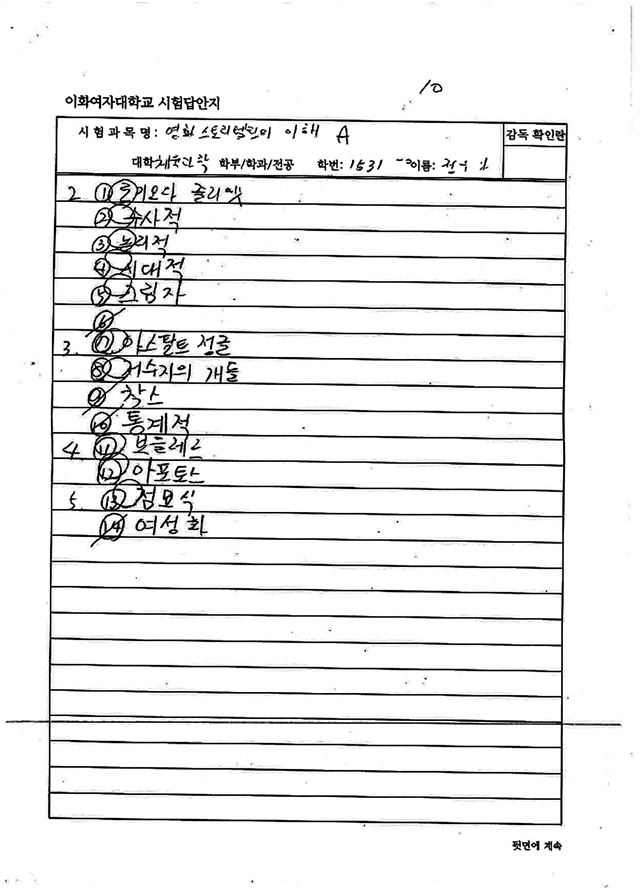 10
이화여자대학교 시험답안지
시험과목명: 영화스토리텔링의 이해 A
감독 확인란
대학 학부/학과/전공 학번: 1531 이름:
2 ① 줄리엣
② 수사적
③ 논리적
④ 시대적
⑤ 그림자
⑥
3. ⑦ 아스팔트 정글
⑧ 저수지의 개들
⑨ 착스
⑩ 통계적
4. ⑪
⑫ 아포토스
5. ⑬ 점묘식
⑭ 여성화
뒷면에 계속